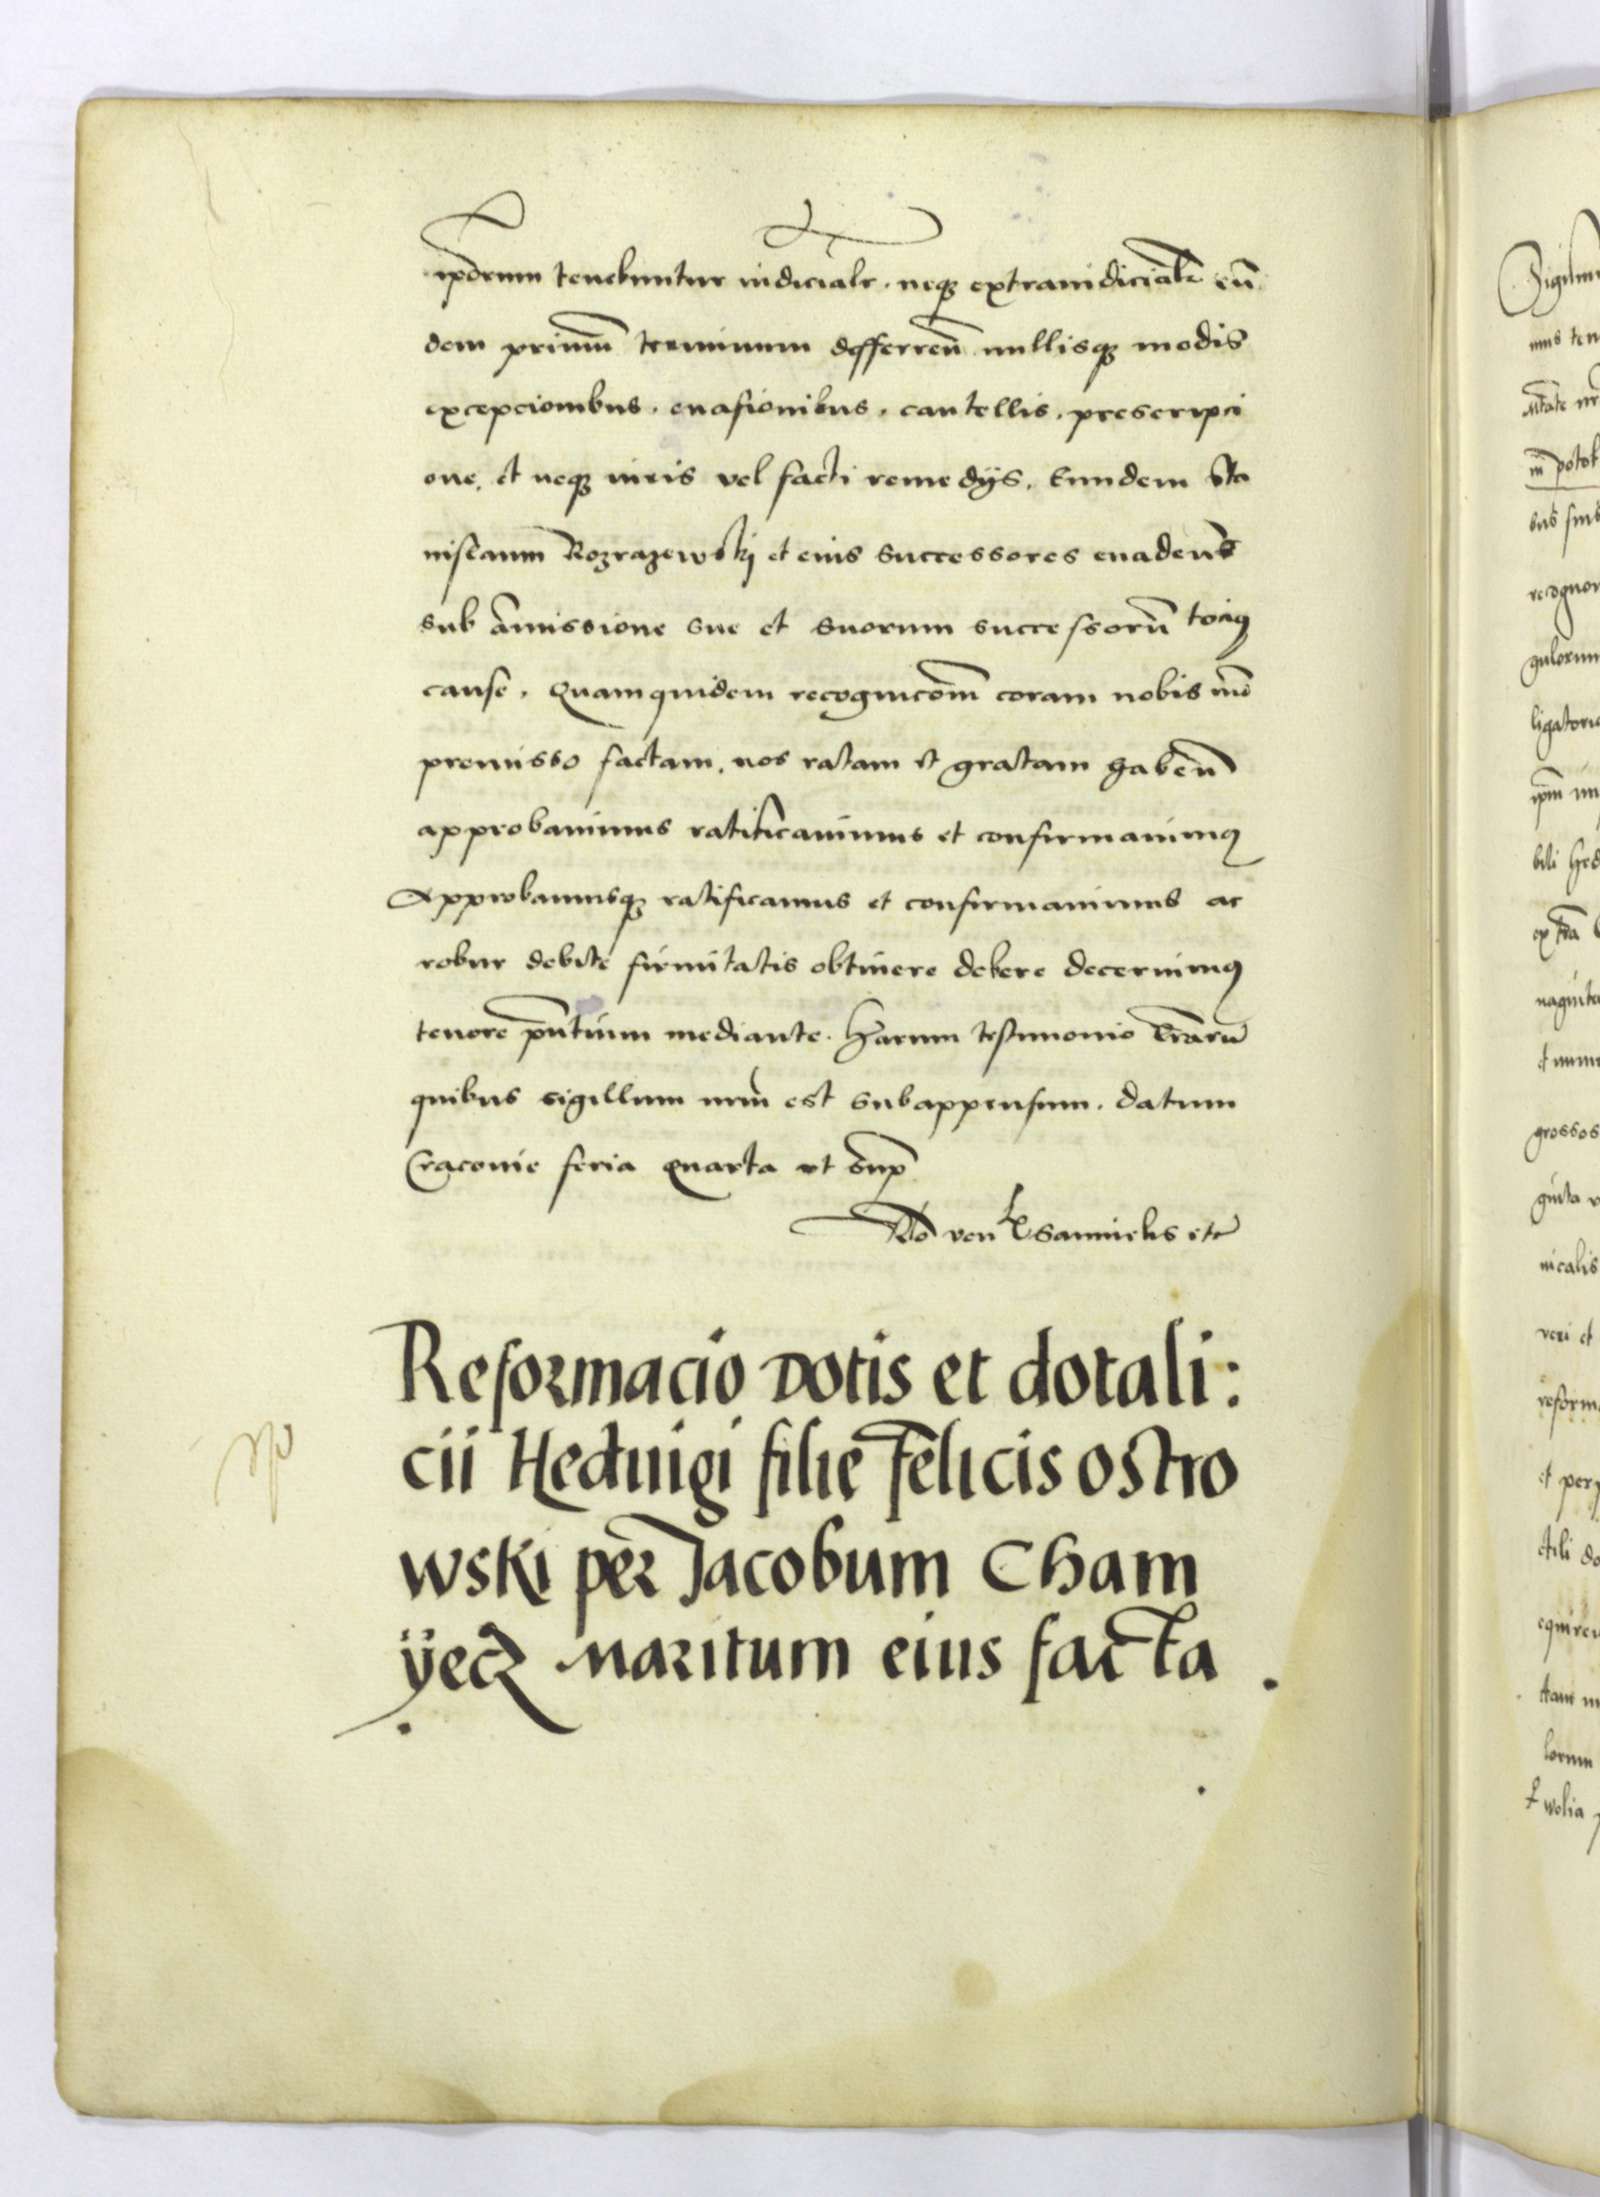 iporum tenebuntur iudiciale. neq extraiudiciale eun
dem primum terminum differren nullisq modis
excepcionibus. euasionibus. cautellis. prescripci
one. et neq iuris vel facti remedys. Eundem Sta
nislaum Rozrazewskj et eius successores euaden
sub amissione sue et suorum successorum tocius
cause. Quamquidem recognicoem coram nobis
premisso factam. nos ratam et gratam haben
approbauimus ratificauimus et confirmauimus
Approbamusq ratificamus et confirmamus ac
robur debite firmitatis obtinere debere decernimus
tenore pntium mediante. Harum testimonio lrarum
quibus sigillum nrm est subappensum. datum
Cracouie feria quarta vt
Rlo ven Samuelis etc
Reformacio Dotis et dotali:
cii Heduigi filie Felicis ostro
wski per Jacobum Cham
ÿecz Maritum eius facta .
Sigism
mus ten
ntate nr
in potok
bus suis
recogno
gulorum
ligatori
ipm
bili Hed
extra
uaginta
et num
grossos
ginta
nicalis
veri et
reform
et perp
ctili do
equire
tam
lorum
wolia